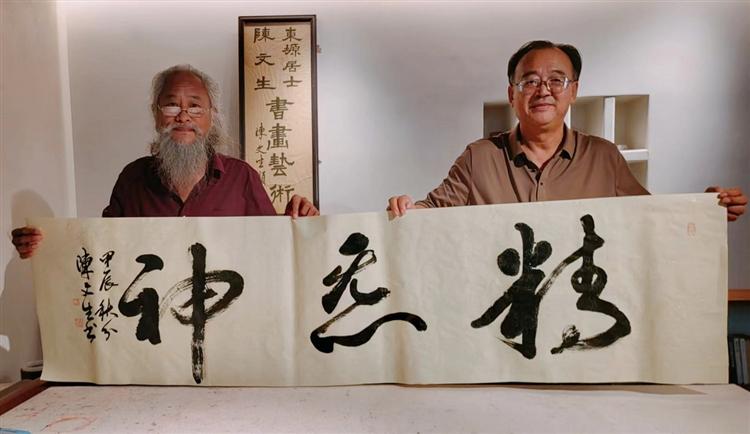 東塬居士
陳文生
書畫藝術
陳文生
精炁神
甲辰秋分
陳文生书